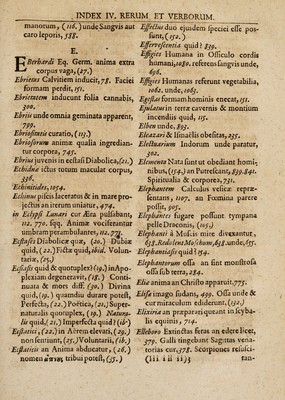 INDEX IV. RERUM ET VERBORUM.
manorum, (116.) unde Sangvis aut
caro leporis, 588.
E.
EBerhardi Eq. Germ. anima extra
corpus vaga, (27.)
Ebrietas Calvitiem inducit, 78. Faciei
formam perdit, 151.
Ebrietatem inducunt folia cannabis,
300.
Ebriis unde omnia geminata apparent,
799.
Ebriositatis curatio, (115.)
Ebriosorum animæ qualia ingrediantur
corpora, 745.
Ebrius juvenis in ecstasi Diabolica, (21.)
Echidnæ ictus totum maculat corpus,
336.
Echinitides, 1054.
Echinus piscis laceratus & in mare projectus
an iterum uniatur, 474.
in Eclypsi Lunari cur Æra pulsabant,
112. 770. Sqq. Animæ vociferantur
umbram perambulantes, 112. 771.
Ecstasis Diabolicæ quæ, (20.) Dubiæ
quid, (22.) Fictæ quid, ibid. Voluntariæ,
(25.)
Ecstasis quid & quotuplex? (19.) in Apoplexiam
degeneravit, (18.) Continuata
& mors diff. (30.) Divina
quid, (19.) quamdiu durare potest,
Perfecta, (22.) Poëtica, (21.) Supernaturalis
quotuplex, (19.) Naturalis
quid, (21.) Imperfecta quid? (ib.)
Ecstatici, (22.) in Aërem elevati, (29.)
non sentiunt, (25.) Voluntarii, (ib.)
Ecstaticis an Anima abducatur, (26.)
nomen tribui potest, (35.)
Effectus duo ejusdem speciei esse possunt,
(152.)
Effervescentia quid? 839.
Effigies Humana in Officulo cordis
humani, 1080. referens sangvis unde,
696.
Effigies Humanas referunt vegetabilia,
1062. unde, 1065.
Egestas formam hominis enecat, 151.
Ejulatus in terræ cavernis & montium
incendiis quid, 115.
Elben unde, 893.
Eleazari & Ismaëlis obesitas, 235.
Electuarium Indorum unde paratur,
302.
Elementa Nata sunt ut obediant hominibus,
(154.) an Putrescant, 839. 841.
Spiritualia & corporea, 731.
Elephantem Calculus vesicæ repræsentans,
1107. an Fœmina parere
possit, 505.
Elephantes fugare possunt tympana
pelle Draconis, (105.)
Elephanti à Moscis mire divexantur,
653. Redolent Moschum, 658. unde, 655.
Elephantiasis quid? 154.
Elephantorum ossa an sint monstrosa
ossa sub terra, 284.
Eliæ anima an Christo apparuit, 775.
Elisa imago fudans, 499. Ossa unde &
cur miraculum ediderunt, (132.)
Elixiria an præparari queant in scybalis
equinis, 714.
Elleboro Extinctas feras an edere licet,
379. Galli tingebant Sagittas venatorias
cur, 378. Scorpiones resusci-
(Iii ii ii) 3
tan-